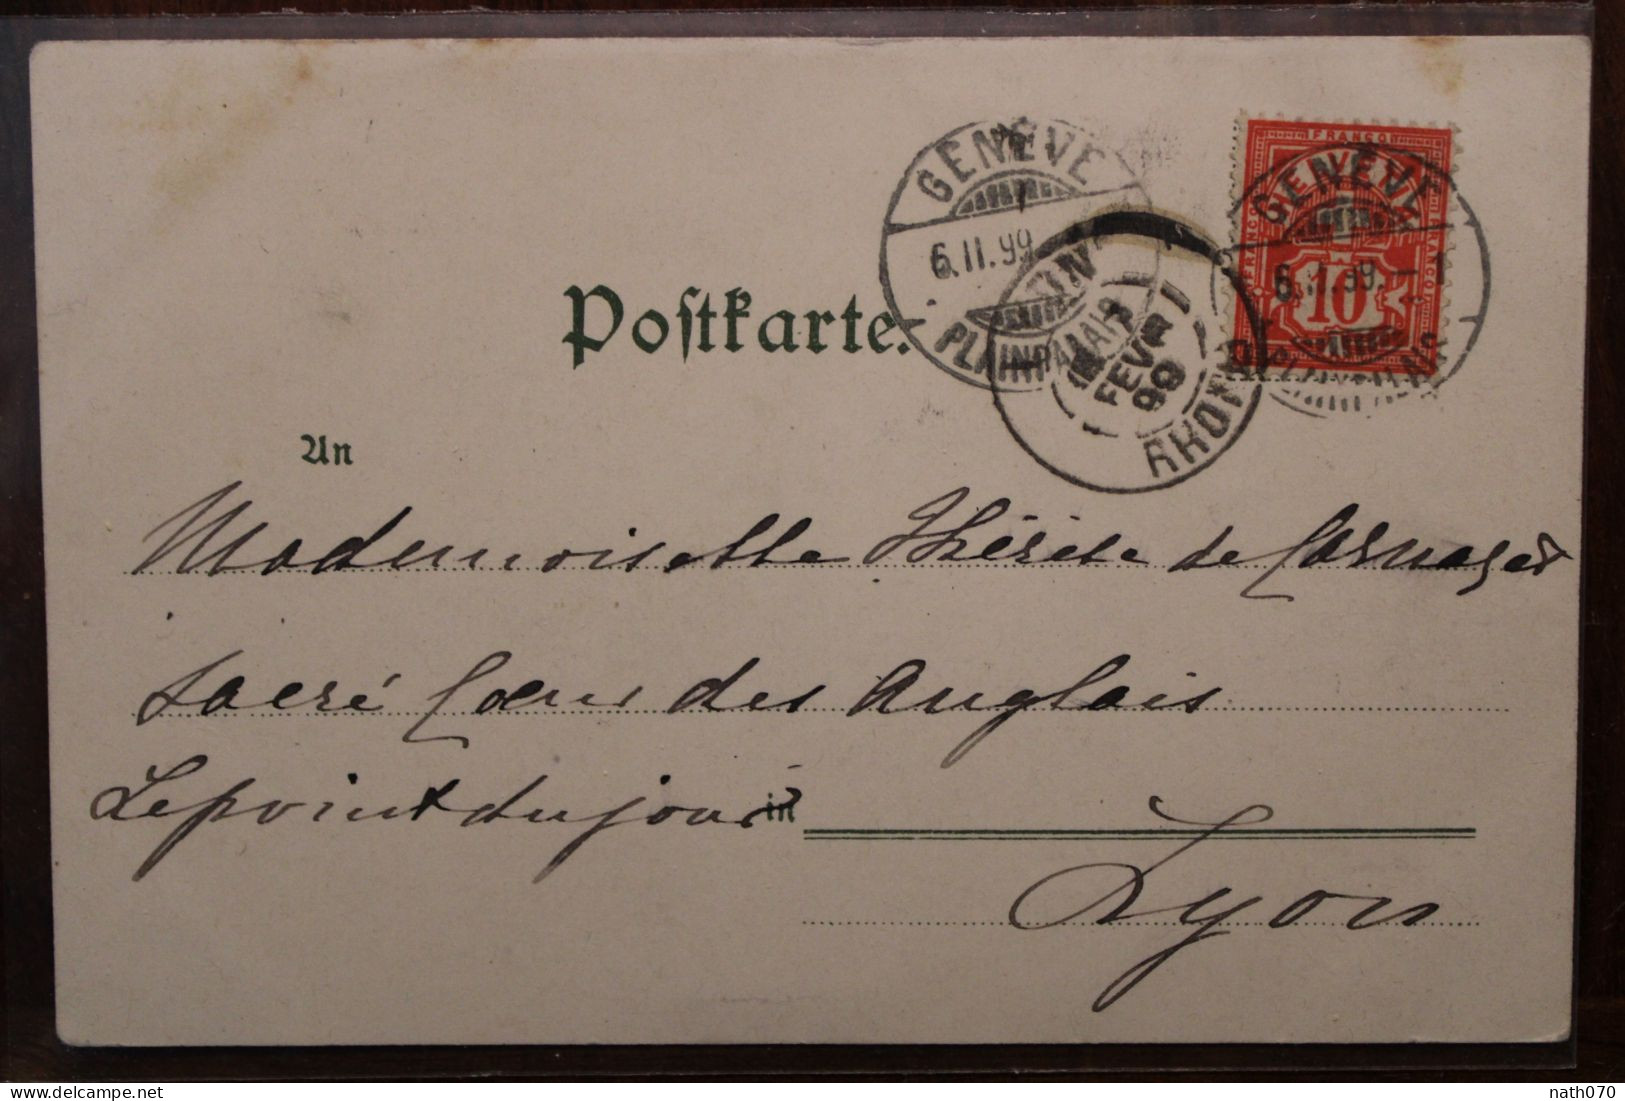 Postkarte.
GENÈVE
6.II.99
PLAINPALAIS
FEVR
99
RHONE
FRANCO
GENÈVE
10
An
Mademoiselle Thérèse de
Sacré Coeur des Anglais
Le point du jour in
Lyon
delcampe.net
nath070